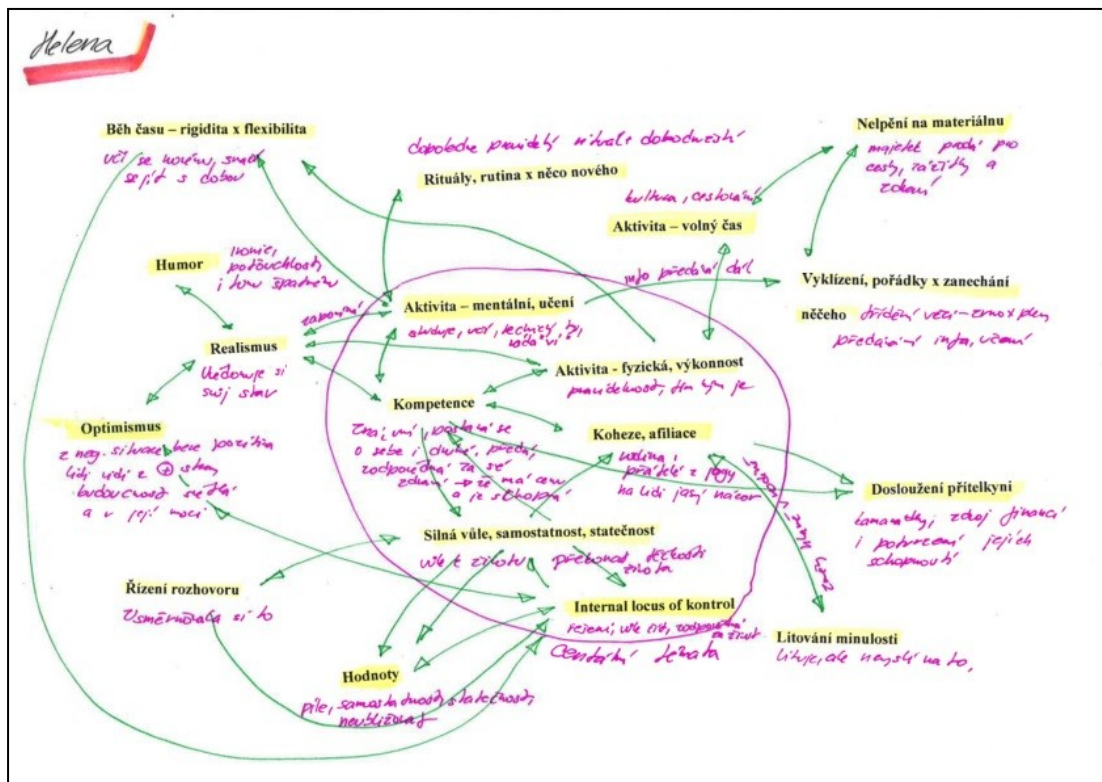 Helena
Běh času – rigidita x flexibilita
učí se novému, snaží
se jít s dobou
dopoledne pravidelný rituál +
Rituály, rutina x něco nového
Nelpění na materiálnu
majetek prodá pro
cesty, zážitky a
zdraví
kultura, cestování
Aktivita – volný čas
Humor
ironie,
i
Aktivita – mentální, učení
info předání dál
Vyklízení, pořádky x zanechání
něčeho třídění věcí
předávání info, učení
zapomíná
Realismus
Uvědomuje si
svůj stav
Aktivita - fyzická, výkonnost
pravidelnost,
Kompetence
Zná, umí, postará se
o sebe i druhé,
zodpovědná za své
zdraví → že má cenu
a je schopná
Koheze, afiliace
rodina,
přátelé z jógy
na lidi jasný názor
Optimismus
z neg. situace bere pozitiva
lidi vidí z + strany
budoucnost světlá
a v její moci
Dosloužení přítelkyni
kamarádky, zdroj financí
i potvrzení jejích
schopností
Silná vůle, samostatnost, statečnost
vůle k životu
překonat těžkosti
života
Řízení rozhovoru
Usměrňovala si to
Internal locus of kontrol
řešení, vůle žít, zodpovědná
za život
Centrální témata
Litování minulosti
Lituje, ale nemyslí na to,
Hodnoty
píle, samostatnost, statečnost,
neubližovat